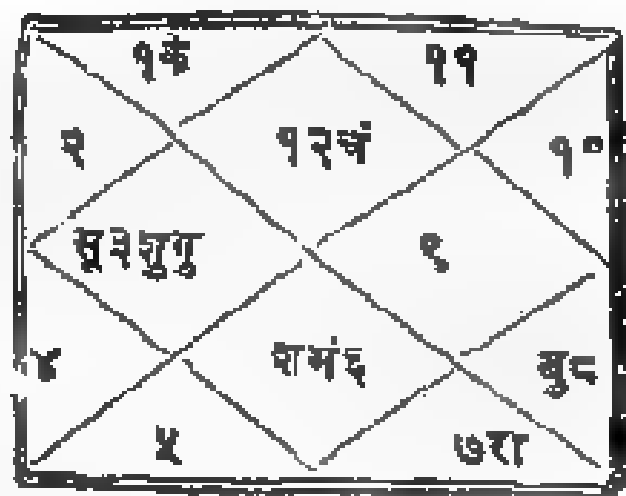 १के ११
२ १२चं १०
सू३शुगु ९
४ शमं६ बु८
५ ७रा